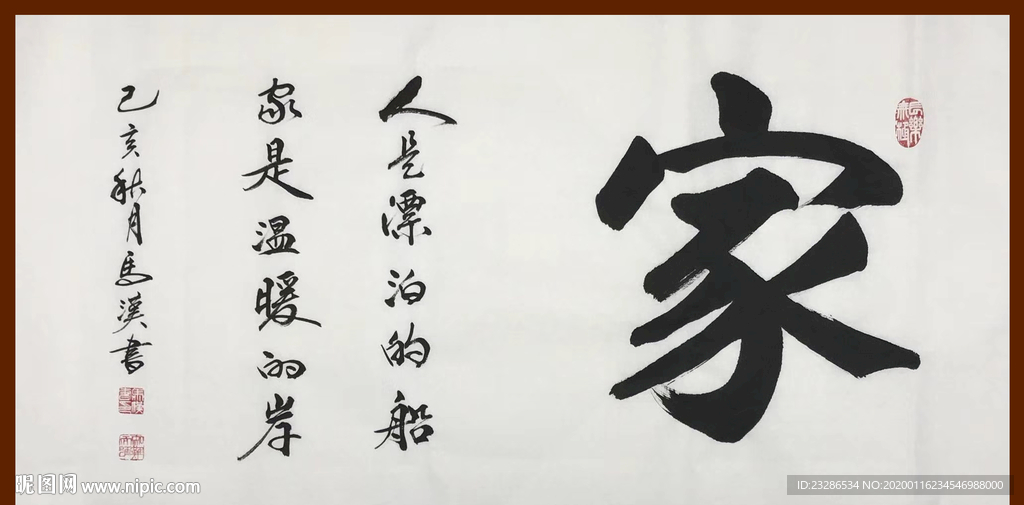 家
人是漂泊的船
家是温暖的岸
己亥秋月馬漢書
昵图网 www.nipic.com
ID:23286534 NO:20200116234546988000